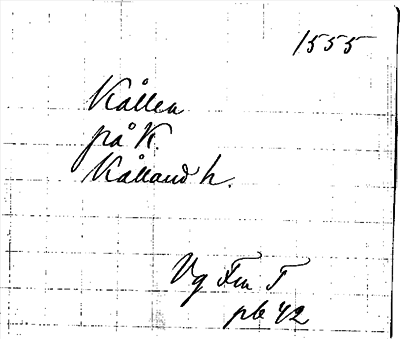 1555
Kållen
på K.
Kålland h.
Vg Fm T
pb 42